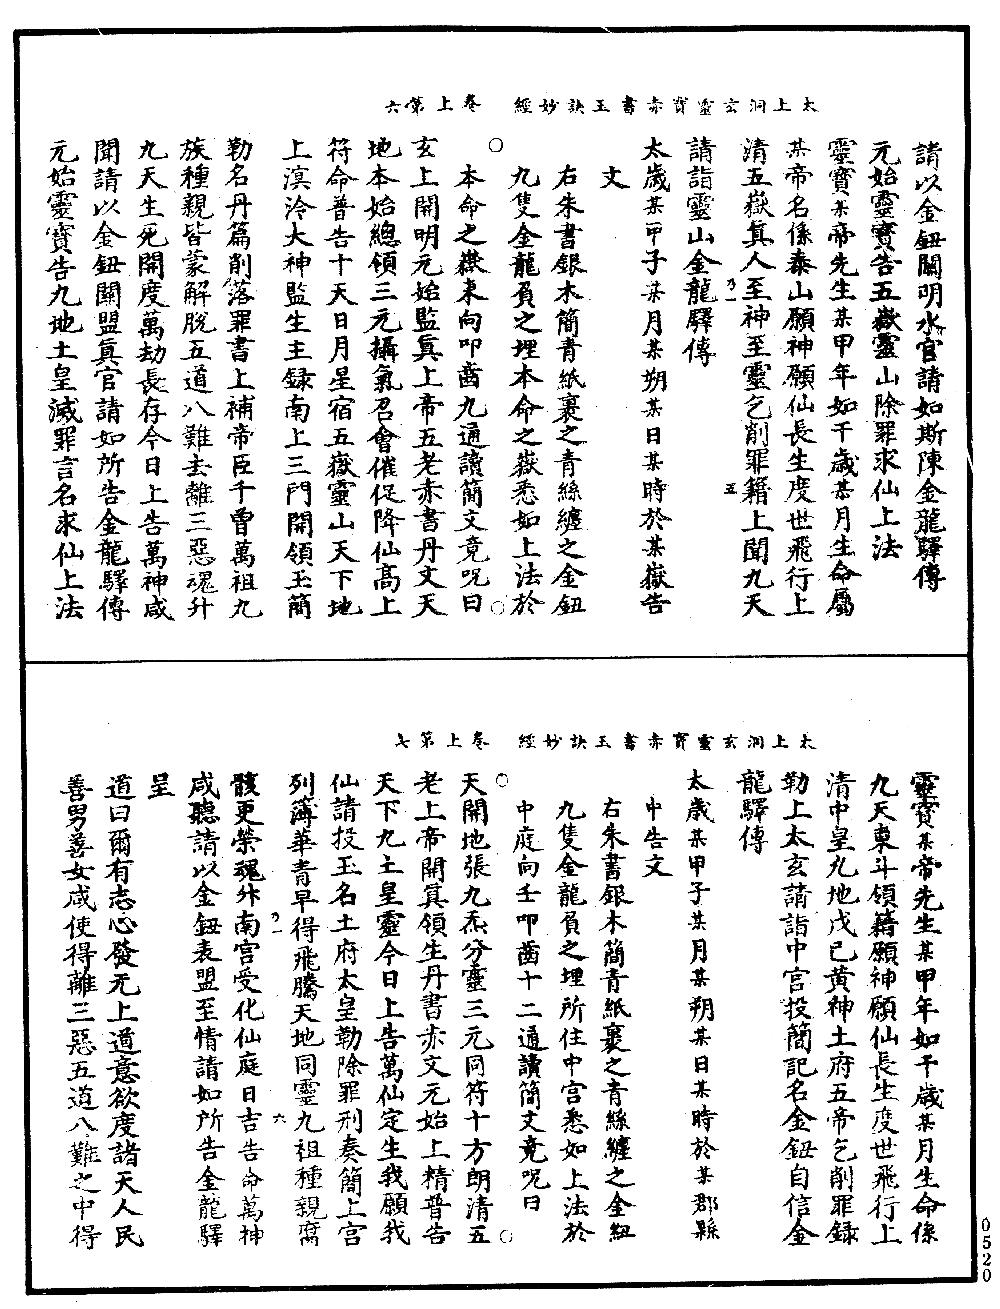 太上洞玄靈寳赤書玉訣妙經　卷上第六
請以金鈕關明水官請如斯陳金龍驛傳
元始靈寳告五嶽靈山除罪求仙上法
靈寳某帝先生某甲年如干歳某月生命屬
某帝名係泰山願神願仙長生度世飛行上
清五嶽真人至神至靈乞削罪籍上聞九天
請詣靈山金龍驛傳
太歳某甲子某月某朔某日某時於某嶽告
文
右朱書銀木簡青紙裹之青絲纏之金鈕
九隻金龍負之埋本命之嶽悉如上法於
本命之嶽東向叩齒九通讀簡文竟呪曰
玄上開明元始監真上帝五老赤書丹文天
地本始總領三元攝氣召會催促降仙高上
符命普告十天日月星宿五嶽靈山天下地
上溟泠大神監生主録南上三門開領玉簡
勒名丹篇削落罪書上補帝臣千曾萬祖九
族種親皆蒙解脫五道八難去離三惡魂升
九天生死開度萬劫長存今日上告萬神咸
聞請以金鈕關盟真官請如所告金龍驛傳
元始靈寳告九地土皇滅罪言名求仙上法
太上洞玄靈寳赤書玉訣妙經　卷上第七
靈寳某帝先生某甲年如干歳某月生命係
九天東斗領籍願神願仙長生度世飛行上
清中皇九地戊己黄神土府五帝乞削罪録
勒上太玄請詣中宫投簡記名金鈕自信金
龍驛傳
太歳某甲子某月某朔某日某時於某郡縣
中告文
右朱書銀木簡青紙裹之青絲纏之金鈕
九隻金龍負之埋所住中宫悉如上法於
中庭向王叩齒十二通讀簡文竟呪曰
天開地張九炁分靈三元同符十方朗清五
老上帝開真領生丹書赤文元始上精普告
天下九土皇靈今日上告萬仙定生我願我
仙請投玉名土府太皇勒除罪刑奏簡上宫
列簿華青早得飛騰天地同靈九祖種親腐
骸更榮魂升南宫受化仙庭日吉告命萬神
咸聽請以金鈕表盟至情請如所告金龍驛
呈
道曰爾有志心發无上道意欲度諸天人民
善男善女咸使得離三惡五道八難之中得
0520